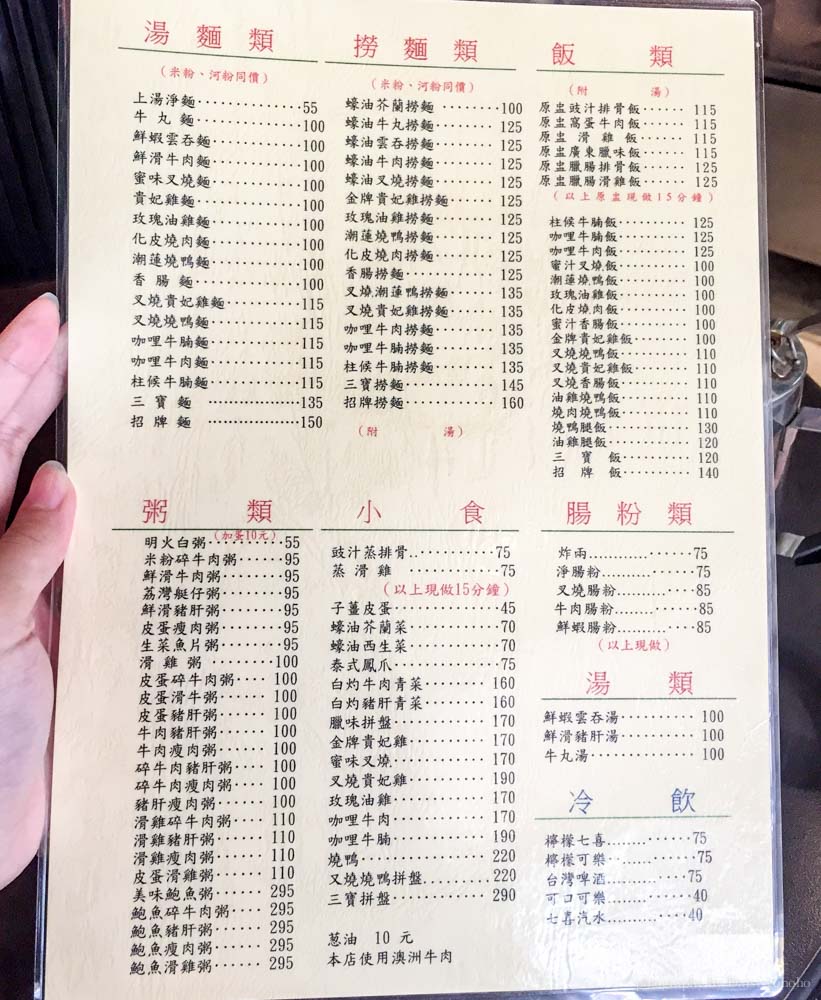 湯麵類
(米粉、河粉同價)
上湯淨麵‥‥‥‥‥‥‥55
牛丸麵‥‥‥‥‥‥‥100
鮮蝦雲吞麵‥‥‥‥‥‥100
鮮滑牛肉麵‥‥‥‥‥‥100
蜜味叉燒麵‥‥‥‥‥‥100
貴妃雞麵‥‥‥‥‥‥‥100
玫瑰油雞麵‥‥‥‥‥‥100
化皮燒肉麵‥‥‥‥‥‥100
潮蓮燒鴨麵‥‥‥‥‥‥100
香腸麵‥‥‥‥‥‥‥100
叉燒貴妃雞麵‥‥‥‥‥115
叉燒燒鴨麵‥‥‥‥‥‥115
咖哩牛腩麵‥‥‥‥‥‥115
咖哩牛肉麵‥‥‥‥‥‥115
柱候牛腩麵‥‥‥‥‥‥115
三寶麵‥‥‥‥‥‥‥135
招牌麵‥‥‥‥‥‥‥150
撈麵類
(米粉、河粉同價)
蠔油芥蘭撈麵‥‥‥‥100
蠔油牛丸撈麵‥‥‥‥125
蠔油雲吞撈麵‥‥‥‥125
蠔油牛肉撈麵‥‥‥‥125
蠔油叉燒撈麵‥‥‥‥125
金牌貴妃雞撈麵‥‥‥125
玫瑰油雞撈麵‥‥‥‥125
潮蓮燒鴨撈麵‥‥‥‥125
化皮燒肉撈麵‥‥‥‥125
香腸撈麵‥‥‥‥‥‥125
叉燒潮蓮鴨撈麵‥‥‥135
叉燒貴妃雞撈麵‥‥‥135
咖哩牛肉撈麵‥‥‥‥135
咖哩牛腩撈麵‥‥‥‥135
柱候牛腩撈麵‥‥‥‥135
三寶撈麵‥‥‥‥‥‥145
招牌撈麵‥‥‥‥‥‥160
(附湯)
飯類
(附湯)
原盅豉汁排骨飯‥‥‥115
原盅窩蛋牛肉飯‥‥‥115
原盅滑雞飯‥‥‥115
原盅廣東臘味飯‥‥‥115
原盅臘腸排骨飯‥‥‥125
原盅臘腸滑雞飯‥‥‥125
(以上原盅現做15分鐘)
柱候牛腩飯‥‥‥‥‥125
咖哩牛腩飯‥‥‥‥‥125
咖哩牛肉飯‥‥‥‥‥125
蜜汁叉燒飯‥‥‥‥‥100
潮蓮燒鴨飯‥‥‥‥‥100
玫瑰油雞飯‥‥‥‥‥100
化皮燒肉飯‥‥‥‥‥100
蜜汁香腸飯‥‥‥‥‥100
金牌貴妃雞飯‥‥‥‥100
叉燒燒鴨飯‥‥‥‥‥110
叉燒貴妃雞飯‥‥‥‥110
叉燒香腸飯‥‥‥‥‥110
油雞燒鴨飯‥‥‥‥‥110
燒肉燒鴨飯‥‥‥‥‥110
燒鴨腿飯‥‥‥‥‥‥130
油雞腿飯‥‥‥‥‥‥120
三寶飯‥‥‥‥‥120
招牌飯‥‥‥‥‥140
粥類
(加蛋10元)
明火白粥‥‥‥‥‥55
米粉碎牛肉粥‥‥‥95
鮮滑牛肉粥‥‥‥‥95
荔灣艇仔粥‥‥‥‥95
鮮滑豬肝粥‥‥‥‥95
皮蛋瘦肉粥‥‥‥‥95
生菜魚片粥‥‥‥‥95
滑雞粥‥‥‥‥100
皮蛋碎牛肉粥‥‥100
皮蛋滑牛粥‥‥‥100
皮蛋豬肝粥‥‥‥100
牛肉豬肝粥‥‥‥100
牛肉瘦肉粥‥‥‥100
碎牛肉豬肝粥‥‥100
碎牛肉瘦肉粥‥‥100
豬肝瘦肉粥‥‥‥100
滑雞碎牛肉粥‥‥110
滑雞豬肝粥‥‥‥110
滑雞瘦肉粥‥‥‥110
皮蛋滑雞粥‥‥‥110
美味鮑魚粥‥‥‥295
鮑魚碎牛肉粥‥‥295
鮑魚豬肝粥‥‥‥295
鮑魚瘦肉粥‥‥‥295
鮑魚滑雞粥‥‥‥295
小食
豉汁蒸排骨‥‥‥‥‥75
蒸滑雞‥‥‥‥‥75
(以上現做15分鐘)
子薑皮蛋‥‥‥‥‥‥45
蠔油芥蘭菜‥‥‥‥‥70
蠔油西生菜‥‥‥‥‥70
泰式鳳爪‥‥‥‥‥‥75
白灼牛肉青菜‥‥‥160
白灼豬肝青菜‥‥‥160
臘味拼盤‥‥‥‥‥170
金牌貴妃雞‥‥‥‥170
蜜味叉燒‥‥‥‥‥170
叉燒貴妃雞‥‥‥‥190
玫瑰油雞‥‥‥‥‥170
咖哩牛肉‥‥‥‥‥170
咖哩牛腩‥‥‥‥‥190
燒鴨‥‥‥‥‥‥‥220
叉燒燒鴨拼盤‥‥‥220
三寶拼盤‥‥‥‥‥290
蔥油 10 元
本店使用澳洲牛肉
腸粉類
炸兩‥‥‥‥‥75
淨腸粉‥‥‥‥75
叉燒腸粉‥‥‥85
牛肉腸粉‥‥‥85
鮮蝦腸粉‥‥‥85
(以上現做)
湯類
鮮蝦雲吞湯‥‥‥‥‥100
鮮滑豬肝湯‥‥‥‥‥100
牛丸湯‥‥‥‥‥‥‥100
冷飲
檸檬七喜‥‥‥‥‥75
檸檬可樂‥‥‥‥‥75
台灣啤酒‥‥‥‥‥75
可口可樂‥‥‥‥‥40
七喜汽水‥‥‥‥‥40